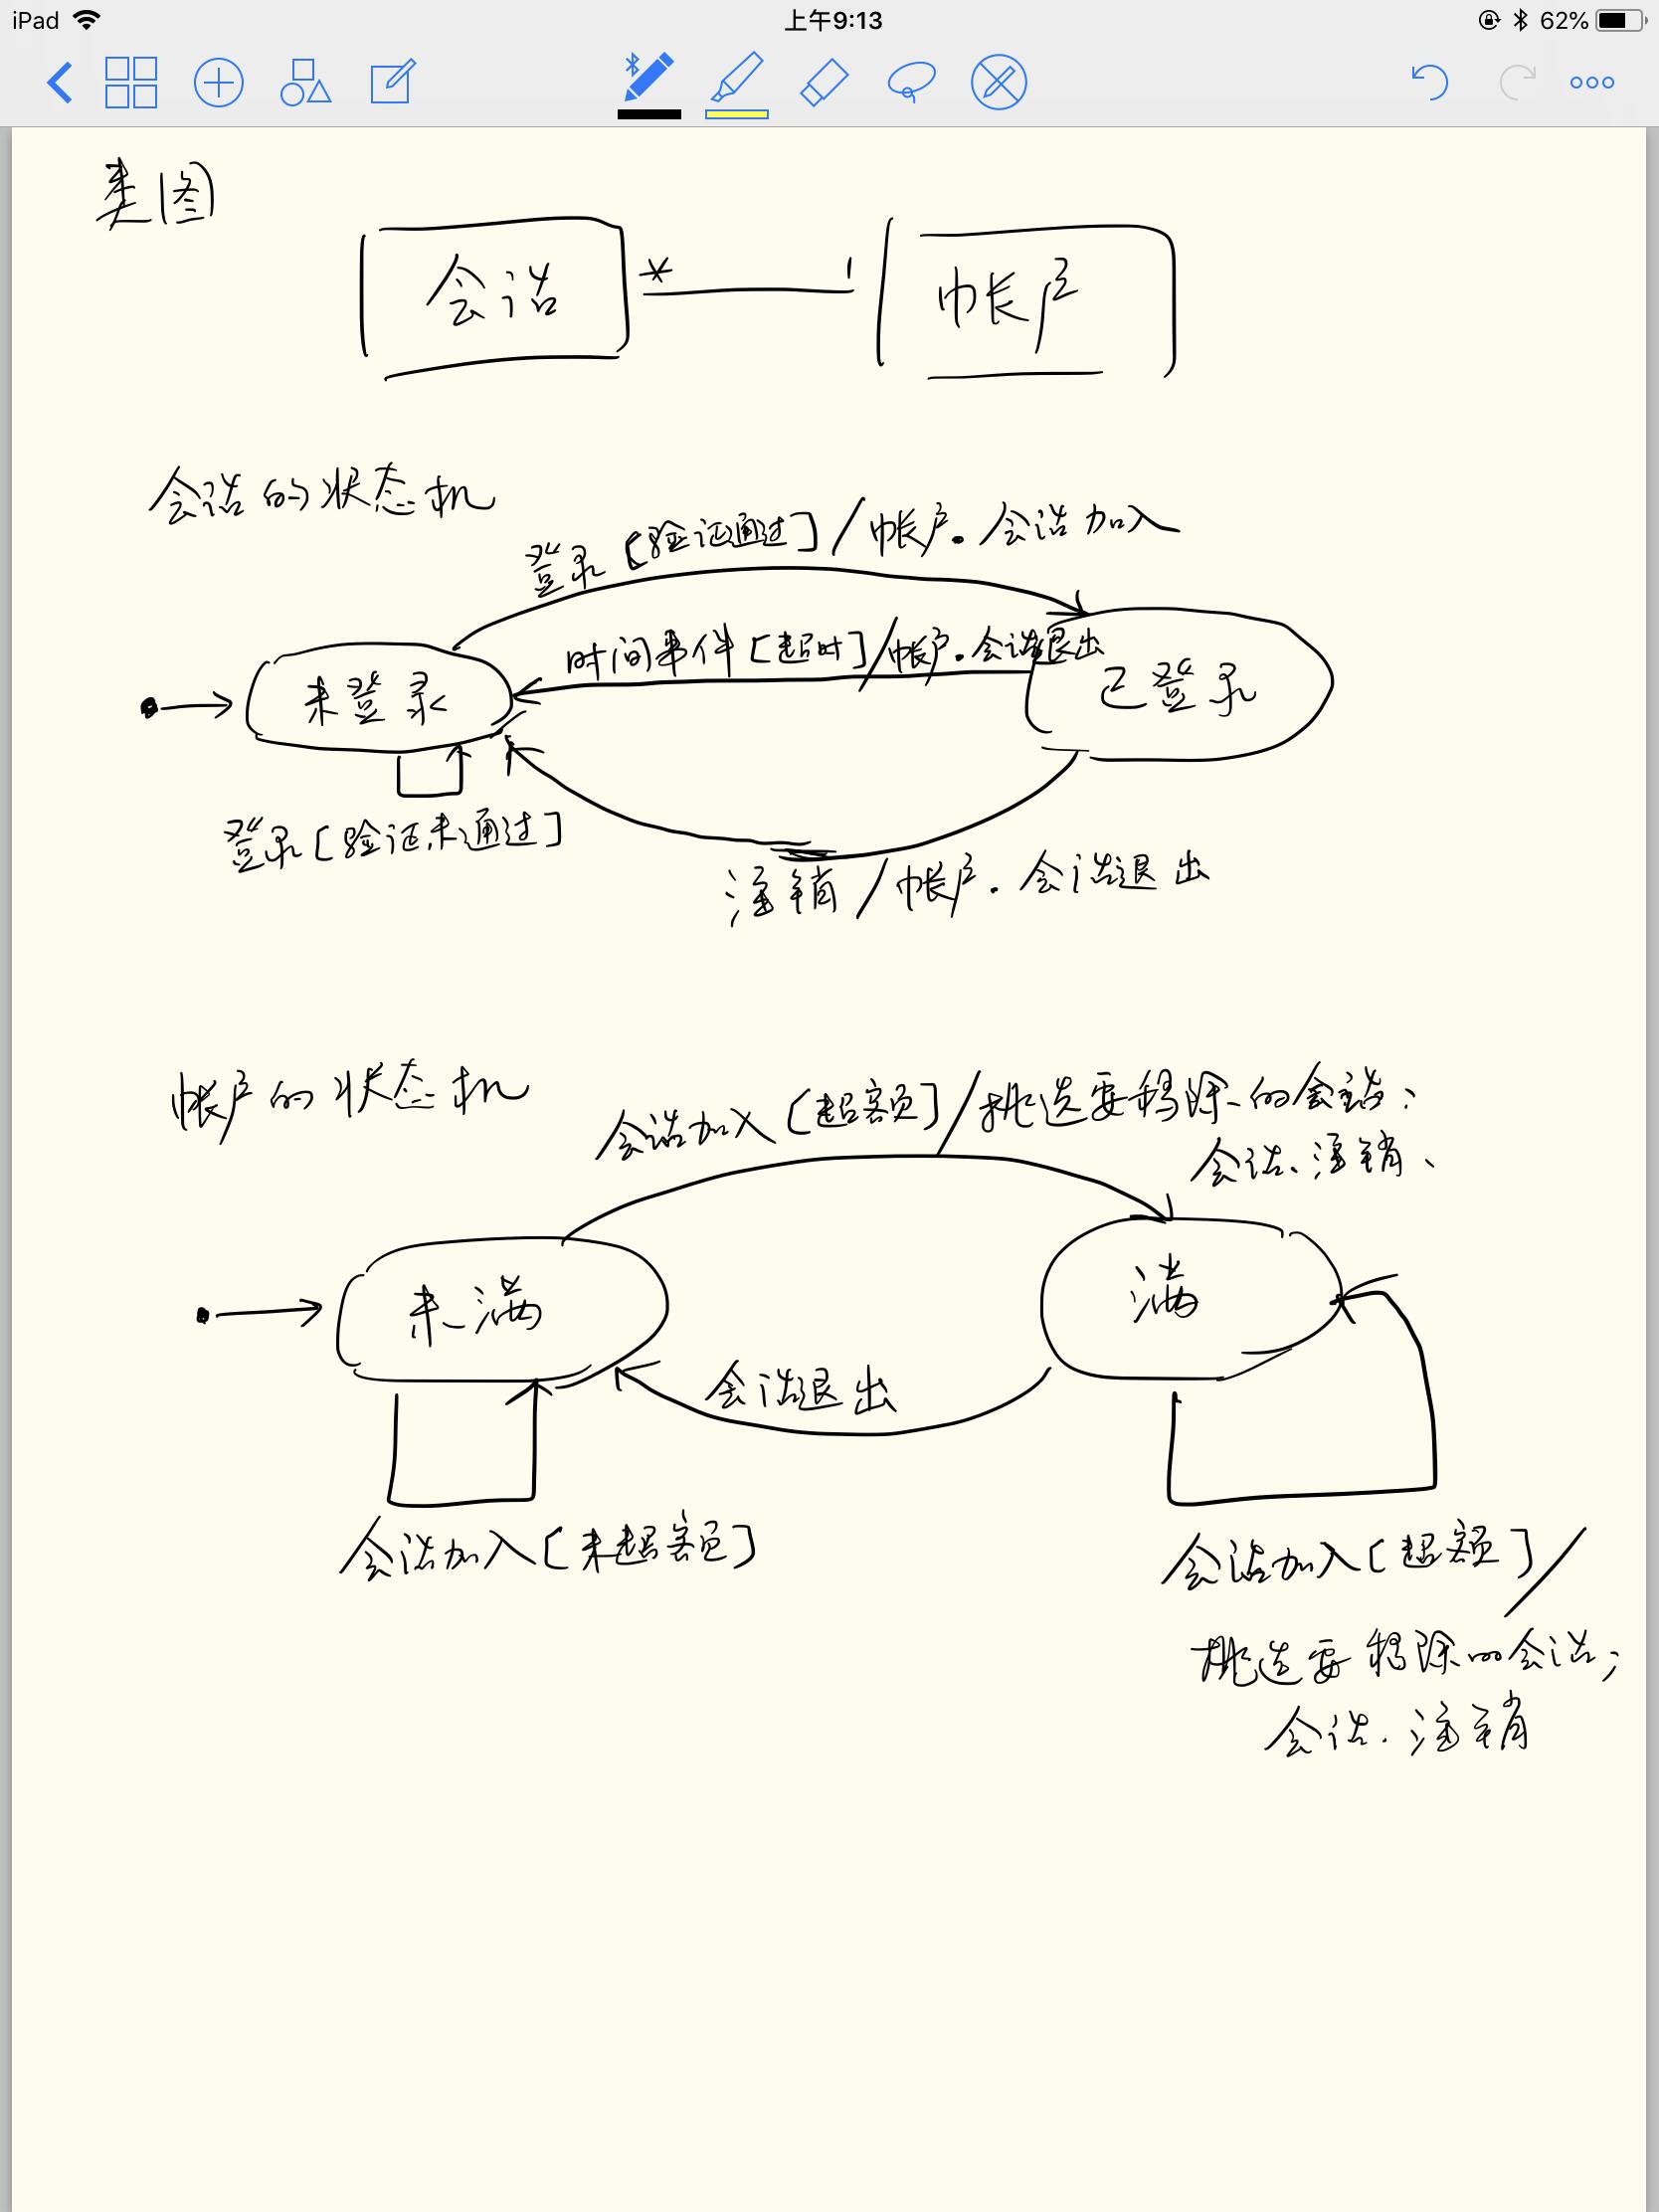 iPad 上午9:13 62%
类图
会话 * 1 帐户
会话的状态机
登录[验证通过]/帐户.会话加入
时间事件[超时]/帐户.会话退出
未登录
已登录
登录[验证未通过]
注销/帐户.会话退出
帐户的状态机
会话加入[超额]/挑选要移除的会话;
会话.注销.
未满
满
会话退出
会话加入[未超额]
会话加入[超额]/
挑选要移除的会话;
会话.注销